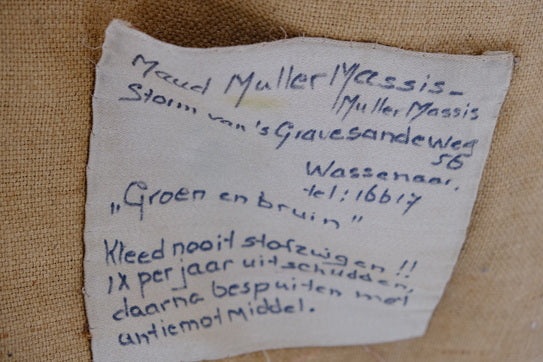 Maud Muller Massis-
Muller Massis
Storm van 's Gravesandeweg
56
Wassenaar.
tel: 16617
„Groen en bruin"
Kleed nooit stofzuigen !!
1x per jaar uitschudden,
daarna bespuiten met
antiemot middel.